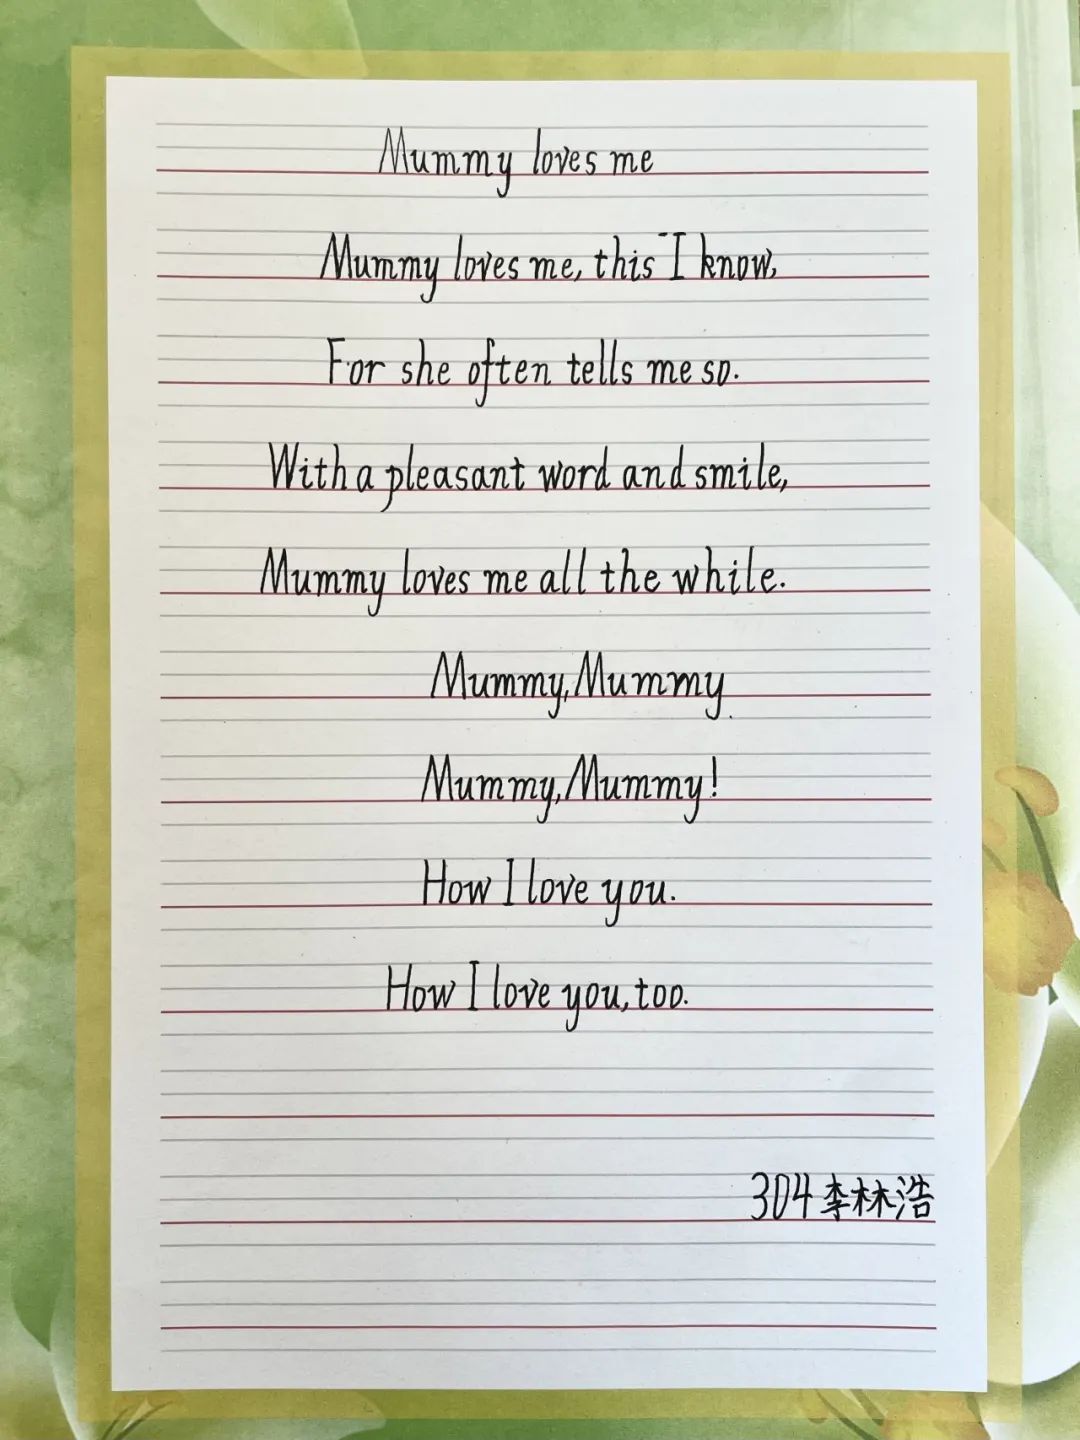 Mummy loves me
Mummy loves me, this I know,
For she often tells me so.
With a pleasant word and smile,
Mummy loves me all the while.
Mummy, Mummy.
Mummy, Mummy!
How I love you.
How I love you, too.
304李林浩